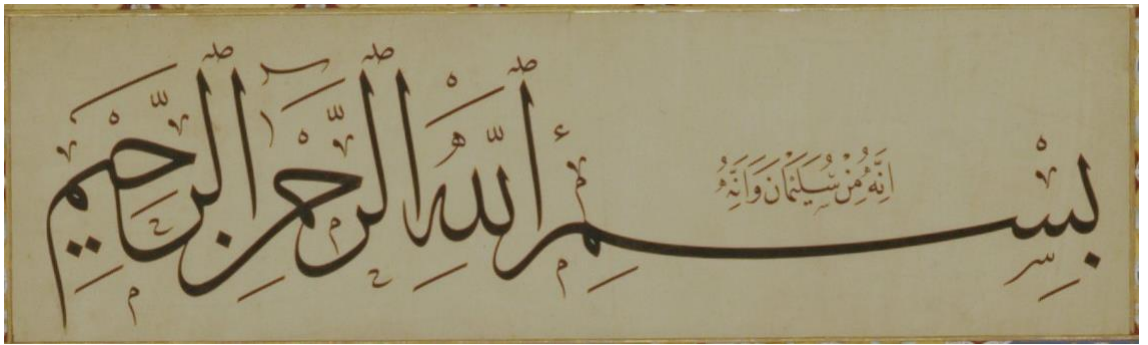 اِنَّهُ مِنْ سُلَيْمَانَ وَاِنَّهُ
بِسْمِ ٱللّٰهِ ٱلرَّحْمٰنِ ٱلرَّحِيمِ